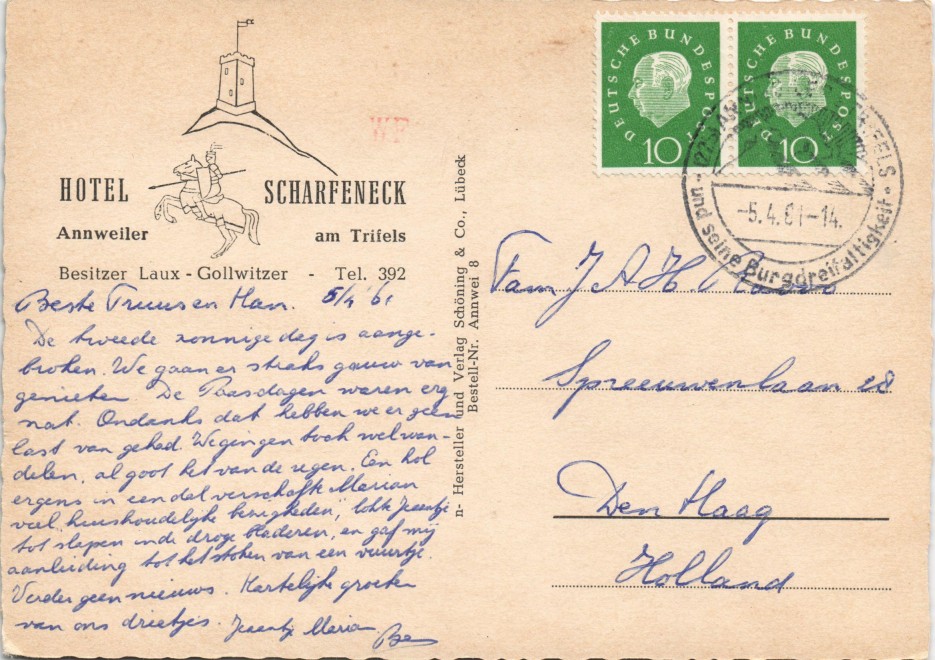 HOTEL SCHARFENECK
Annweiler am Trifels
Besitzer Laux - Gollwitzer - Tel. 392
WF
Beste Truus en Han. 5/4 '61
De tweede zonnige dag is aange-
broken. We gaan er straks gauw van
genieten. De Paasdagen waren erg
nat. Ondanks dat hebben we er geen
last van gehad. We gingen toch wel wan-
delen, al goot het van de regen. Een hol
ergens in een dal verschafte Marian
veel huishoudelijke bezigheden, lokte Jeentje
tot slapen in de droge bladeren, en gaf mij
aanleiding tot het stoken van een vuurtje.
Verder geen nieuws. Hartelijke groeten
van ons drietjes. Jeentje Marian
n- Hersteller und Verlag Schöning & Co., Lübeck
Bestell-Nr. Annwei 8
DEUTSCHE BUNDESPOST 10
DEUTSCHE BUNDESPOST 10
-5.4.61-14.
und seine Burgdreifaltigkeit
Fam J A H.
Spreeuwenlaan 28
Den Haag
Holland